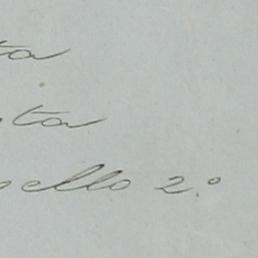 ta
ta
ello 2.º